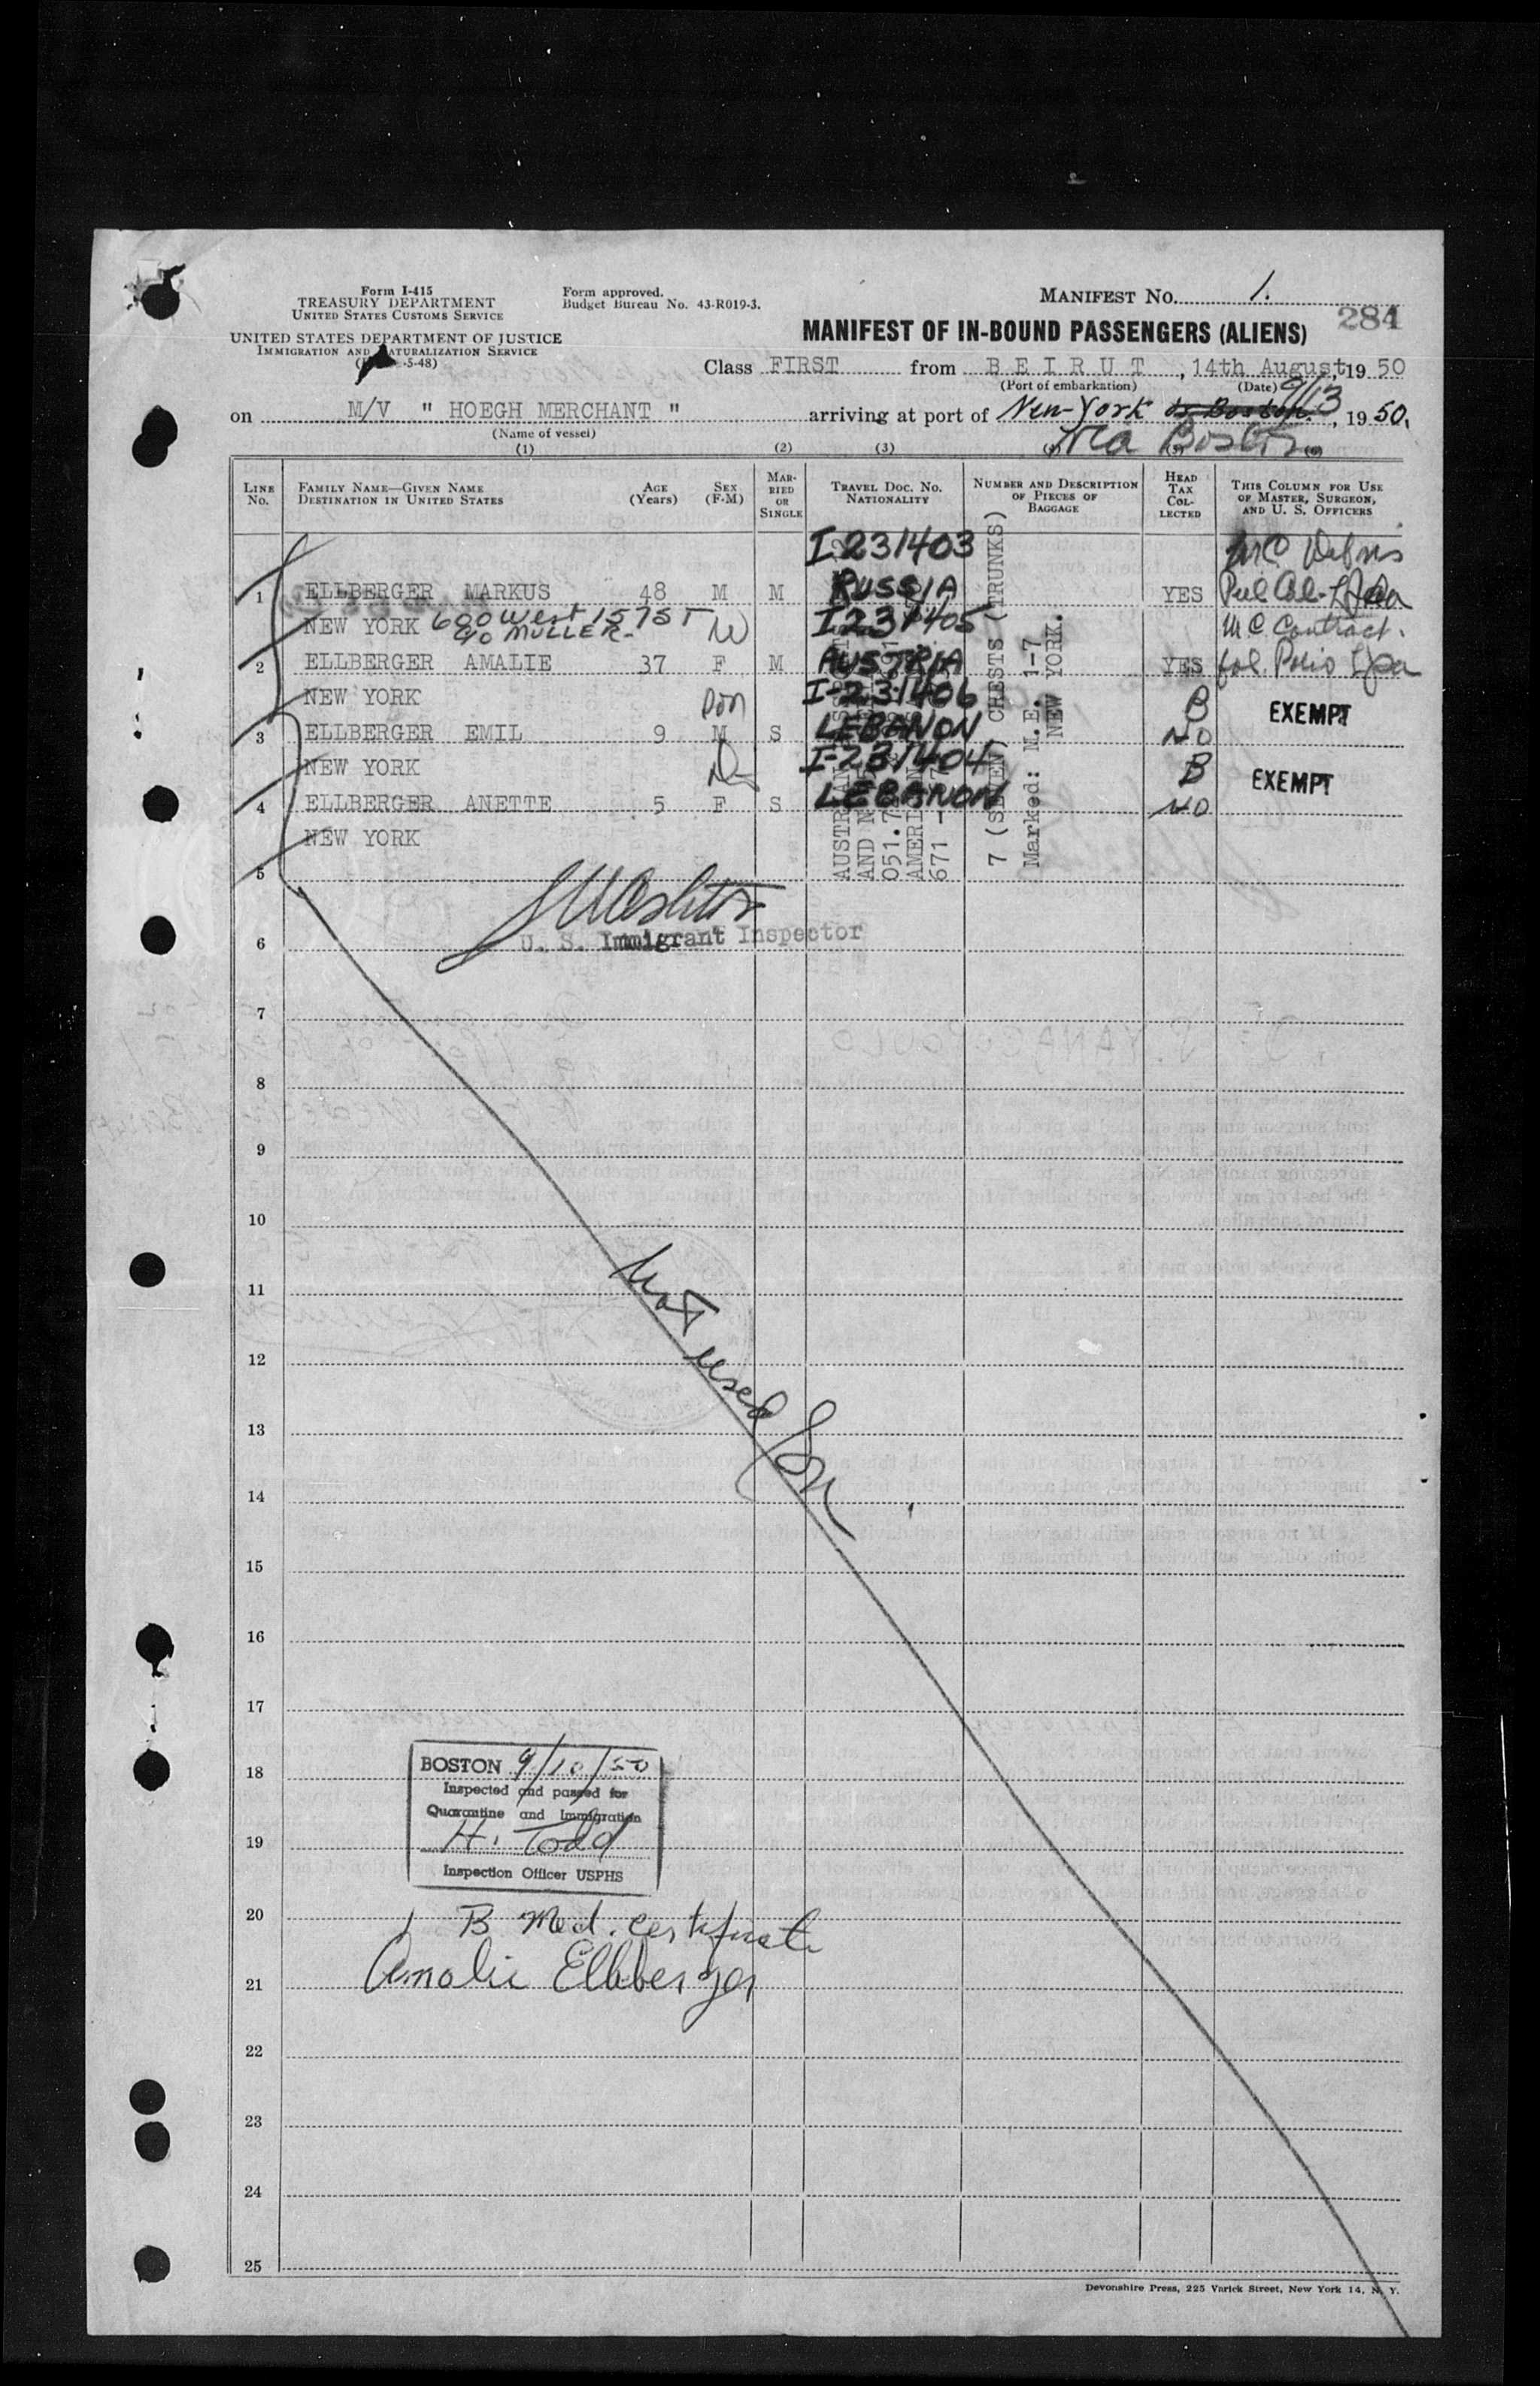 Form I-415
TREASURY DEPARTMENT
UNITED STATES CUSTOMS SERVICE
UNITED STATES DEPARTMENT OF JUSTICE
IMMIGRATION AND NATURALIZATION SERVICE
5-48)
Form approved.
Budget Bureau No. 43-R019-3.
MANIFEST NO. 1.
284
MANIFEST OF IN-BOUND PASSENGERS (ALIENS)
Class FIRST from BEIRUT, 14th August, 19 50
(Port of embarkation) (Date)
on M/V " HOEGH MERCHANT " arriving at port of New-York or Boston 9/13, 19 50.
(Name of vessel) Via Boston
(1) (2) (3)
LINE NO. FAMILY NAME—GIVEN NAME DESTINATION IN UNITED STATES AGE (Years) SEX (F-M) MARRIED OR SINGLE TRAVEL DOC. NO. NATIONALITY NUMBER AND DESCRIPTION OF PIECES OF BAGGAGE HEAD TAX COLLECTED THIS COLUMN FOR USE OF MASTER, SURGEON, AND U. S. OFFICERS
I 231403
1 ELLBERGER MARKUS 48 M M RUSSIA YES
NEW YORK 600 West 157 ST W I 231405 MC Contract.
c/o MULLER-
2 ELLBERGER AMALIE 37 F M AUSTRIA YES
NEW YORK Son I-231406 B EXEMPT
3 ELLBERGER EMIL 9 M S LEBANON NO
NEW YORK I-231404 B EXEMPT
4 ELLBERGER ANETTE 5 F S LEBANON NO
NEW YORK
7 (SEVEN) CHESTS (TRUNKS)
Marked: M.E. 1-7
NEW YORK.
5
U. S. Immigrant Inspector
6
7
8
9
10
11
Not used
12
13
14
15
16
17
18
BOSTON 9/10/50
Inspected and passed for
Quarantine and Immigration
H. Todd
Inspection Officer USPHS
19
20
1 B Med. certificate
21 Amalie Ellberger
22
23
24
25
Devonshire Press, 225 Varick Street, New York 14, N. Y.